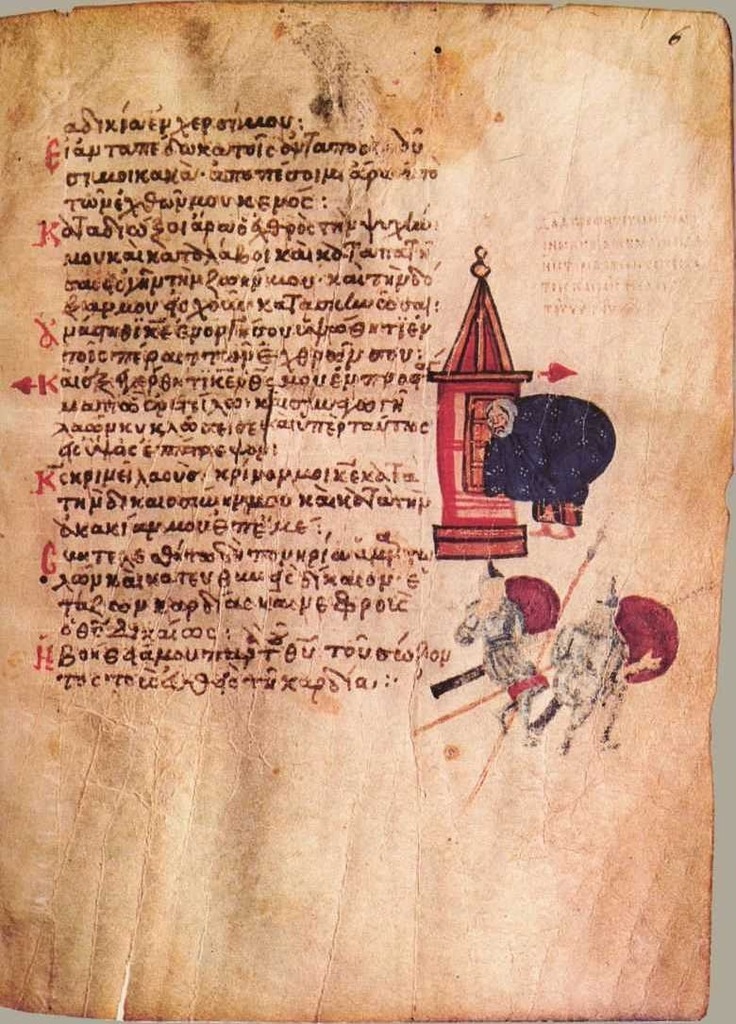 6
ἀδικία ἐν χερσίν μου:
Εἰ ἀνταπέδωκα τοῖς ἀνταποδιδοῦ
σί μοι κακά· ἀποπέσοιμι ἄρα ἀπὸ
τῶν ἐχθρῶν μου κενός:
Καταδιώξοι ἄρα ὁ ἐχθρὸς τὴν ψυχήν
μου καὶ καταλάβοι καὶ καταπατή
σαι εἰς γῆν τὴν ζωήν μου· καὶ τὴν δό
ξαν μου εἰς χοῦν κατασκηνώσαι:
Ἀνάστηθι κε ἐν ὀργῇ σου ὑψώθητι ἐν
τοῖς πέρασι τῶν ἐχθρῶν σου:
Καὶ ἐξεγέρθητι κε ὁ θς μου ἐν προσ
τάγματι ᾧ ἐνετείλω· καὶ συναγωγὴ
λαῶν κυκλώσει σε καὶ ὑπὲρ ταύτης
εἰς ὕψος ἐπίστρεψον:
Κς κρινεῖ λαούς· κρῖνόν μοι κε κατὰ
τὴν δικαιοσύνην μου καὶ κατὰ τὴν
ἀκακίαν μου ἐπ' ἐμέ:
Συντελεσθήτω δὴ πονηρία ἁμαρτω
λῶν καὶ κατευθυνεῖς δίκαιον· ἐ
τάζων καρδίας καὶ νεφροὺς
ὁ θς δικαίως:
Ἡ βοήθειά μου παρὰ τοῦ θυ τοῦ σώζον
τος τοὺς εὐθεῖς τῇ καρδίᾳ: